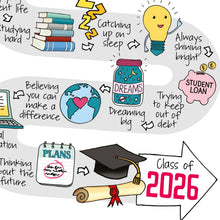 ent life
Studying
hard
Catching
up on
sleep
Always
shining
bright!
STUDENT
LOAN
Trying
to keep
out of
debt
DREAMS
Dreaming
big
Believing
you can
make a
difference
Thinking
about the
future
PLANS
Class of
2026